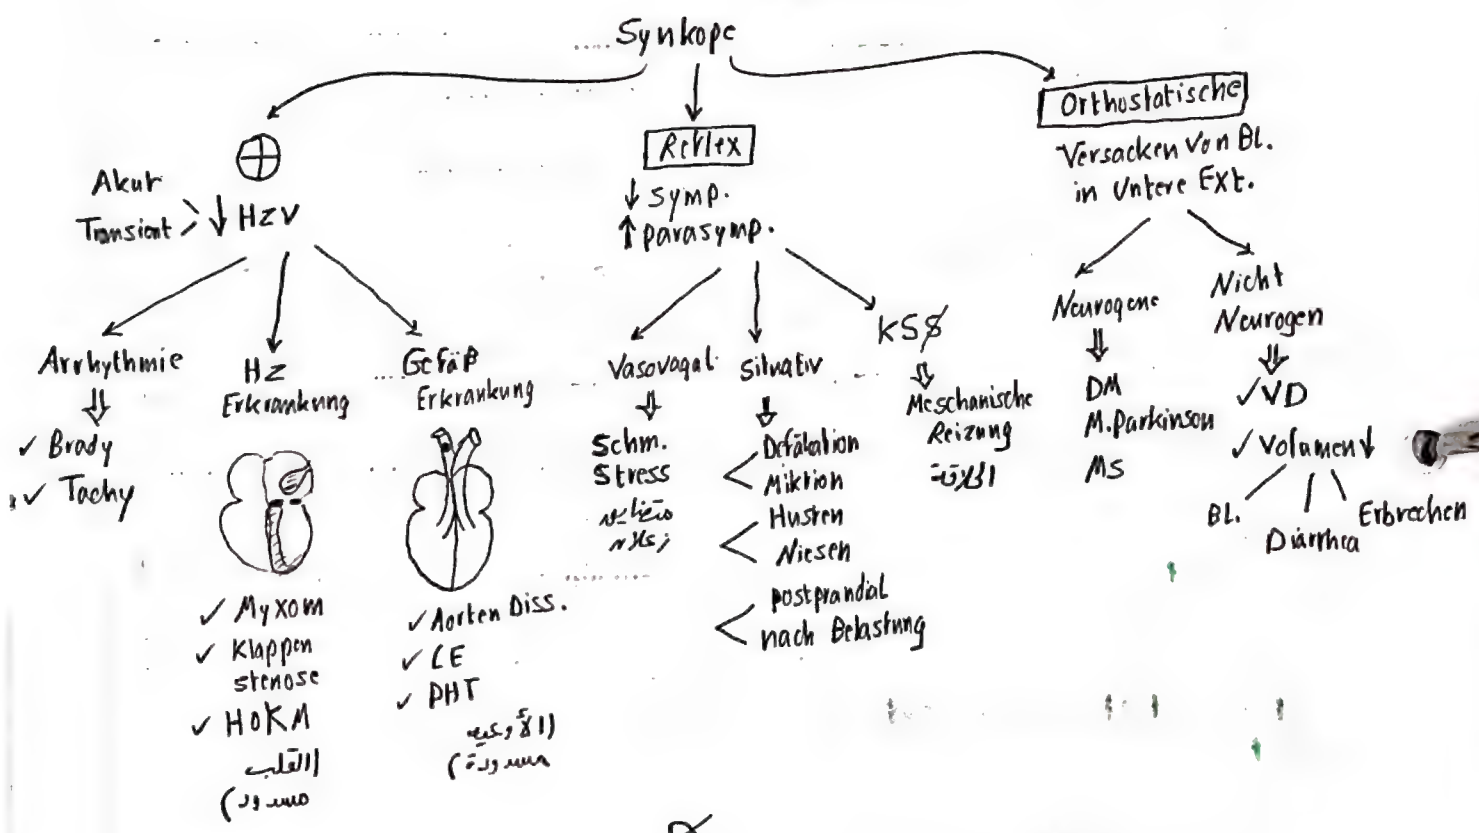 Synkope
Akut
Transient
↓ HZV
Arrhythmie
✓ Brady
✓ Tachy
HZ
Erkrankung
✓ Myxom
✓ Klappen
stenose
✓ HOKM
(القلب
مسدود)
Gefäß
Erkrankung
✓ Aorten Diss.
✓ LE
✓ PHT
(الأوعيه
مسدودة)
Reflex
↓ Symp.
↑ parasymp.
Vasovagal
Schm.
Stress
Situativ
Defäkation
Miktion
Husten
Niesen
postprandial
nach Belastung
KSS
Meschanische
Reizung
الحلاقة
Orthostatische
Versacken von Bl.
in Untere Ext.
Neurogene
DM
M.Parkinson
MS
Nicht
Neurogen
✓ VD
✓ Volumen↓
BL.
Diarrhea
Erbrechen